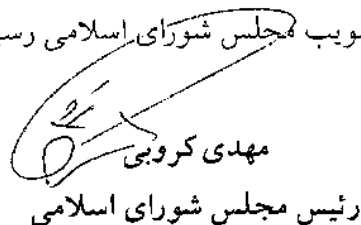 تصویب مجلس شورای اسلامی رسید
مهدی کروبی
رئیس مجلس شورای اسلامی